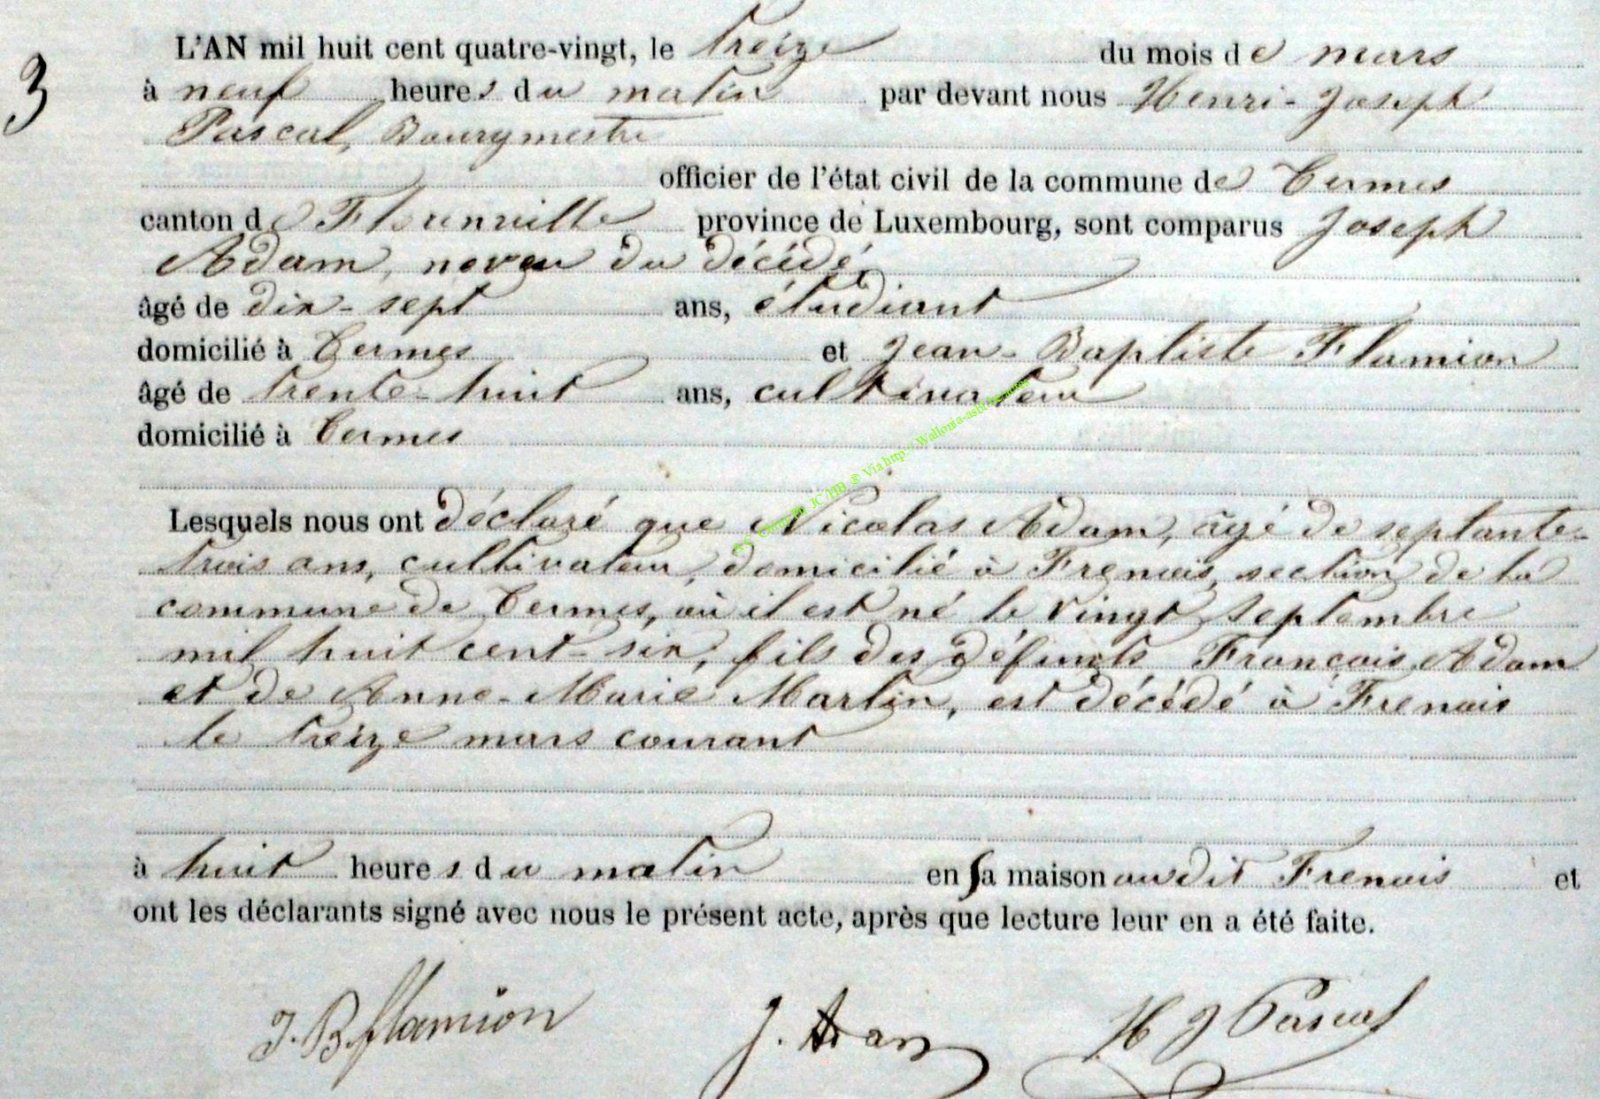 3
L'AN mil huit cent quatre-vingt, le treize du mois de mars
à neuf heures du matin par devant nous Henri-Joseph
Pascal, Bourgmestre
officier de l'état civil de la commune de Termes
canton de Florenville province de Luxembourg, sont comparus Joseph
Adam, neveu du décédé,
âgé de dix-sept ans, étudiant
domicilié à Termes et Jean-Baptiste Flamion
âgé de trente-huit ans, cultivateur
domicilié à Termes
Lesquels nous ont déclaré que Nicolas Adam, âgé de septante-
trois ans, cultivateur, domicilié à Frenois, section de la
commune de Termes, où il est né le vingt septembre
mil huit cent-six, fils des défunts François Adam
et de Anne-Marie Martin, est décédé à Frenois
le treize mars courant
à huit heures du matin en sa maison audit Frenois et
ont les déclarants signé avec nous le présent acte, après que lecture leur en a été faite.
J. B flamion J. Adam H J Pascal
JC HB © Via http Wallonia-asbl